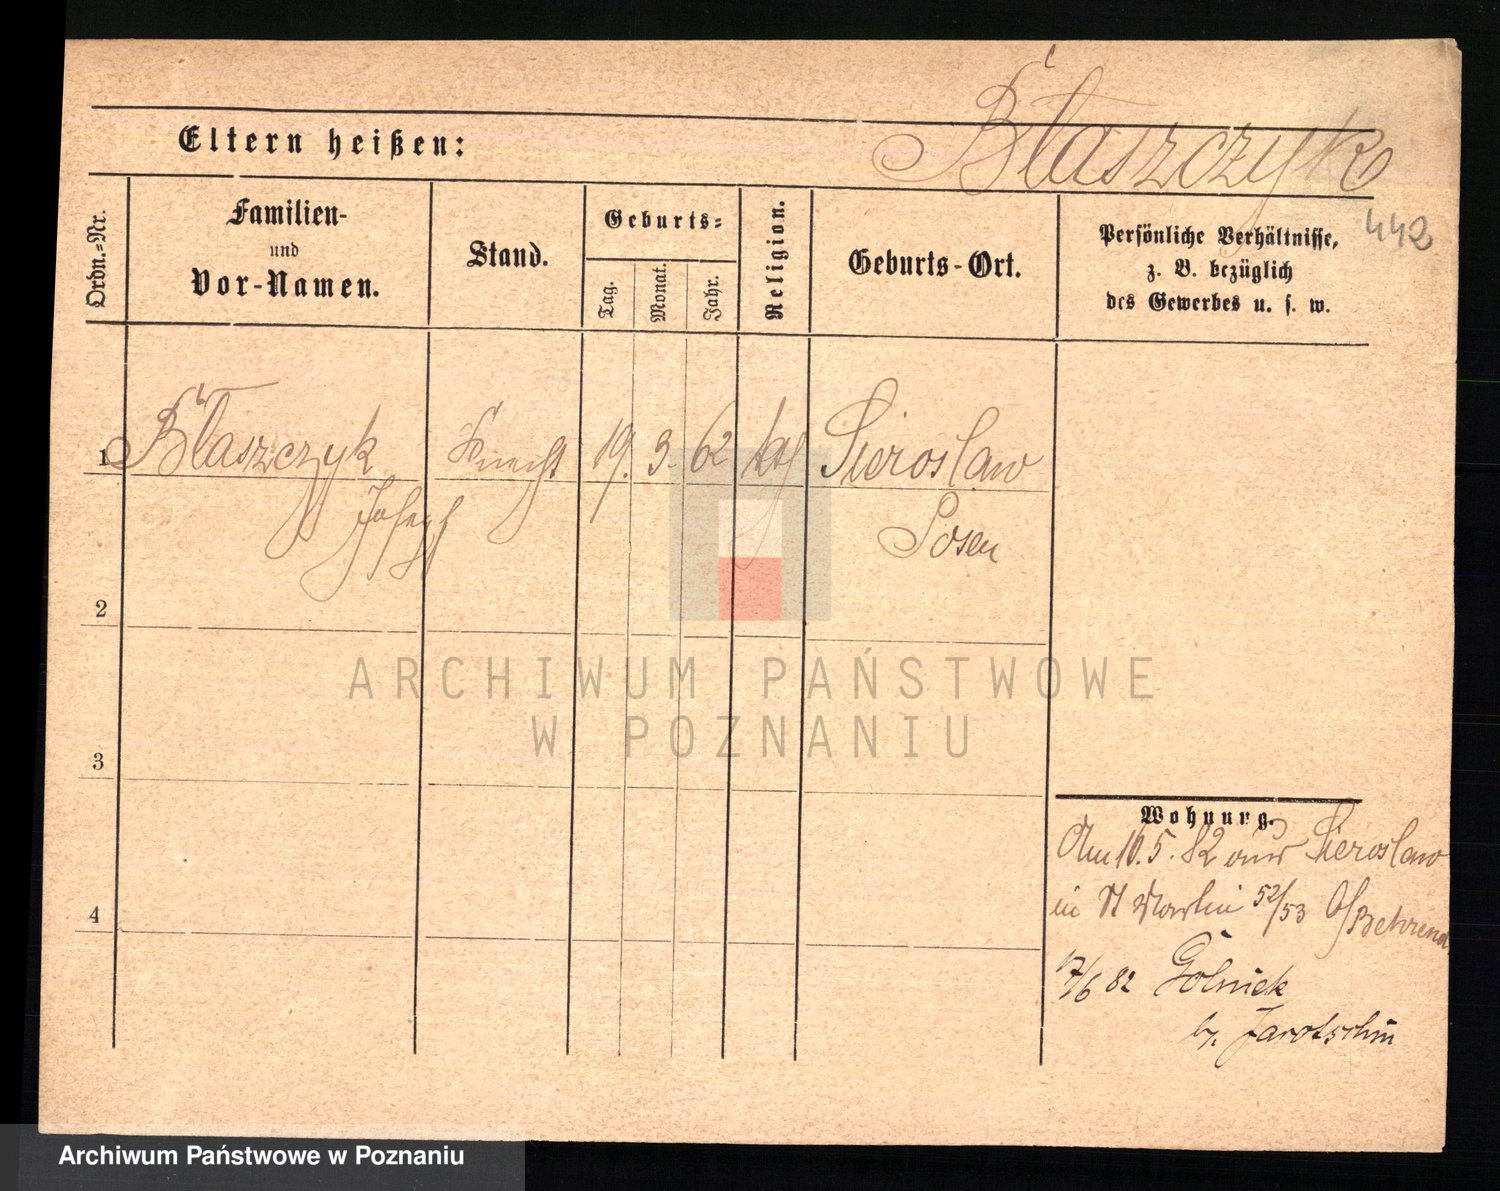 Błaszczyk
Eltern heißen:
442
Ordn.=Nr.
Familien-
und
Vor-Namen.
Stand.
Geburts=
Tag.
Monat.
Jahr.
Religion.
Geburts-Ort.
Persönliche Verhältnisse,
z. B. bezüglich
des Gewerbes u. s. w.
1 Błaszczyk Knecht 19. 3. 62 kath Sieroslaw
Joseph Posen
2
3
4
ARCHIWUM PAŃSTWOWE
W POZNANIU
Wohnung.
Am 16.5.82 aus Sieroslaw
in St Martin 52/53 Behrend
17/6 82 Golniek
b. Jarotschin
Archiwum Państwowe w Poznaniu